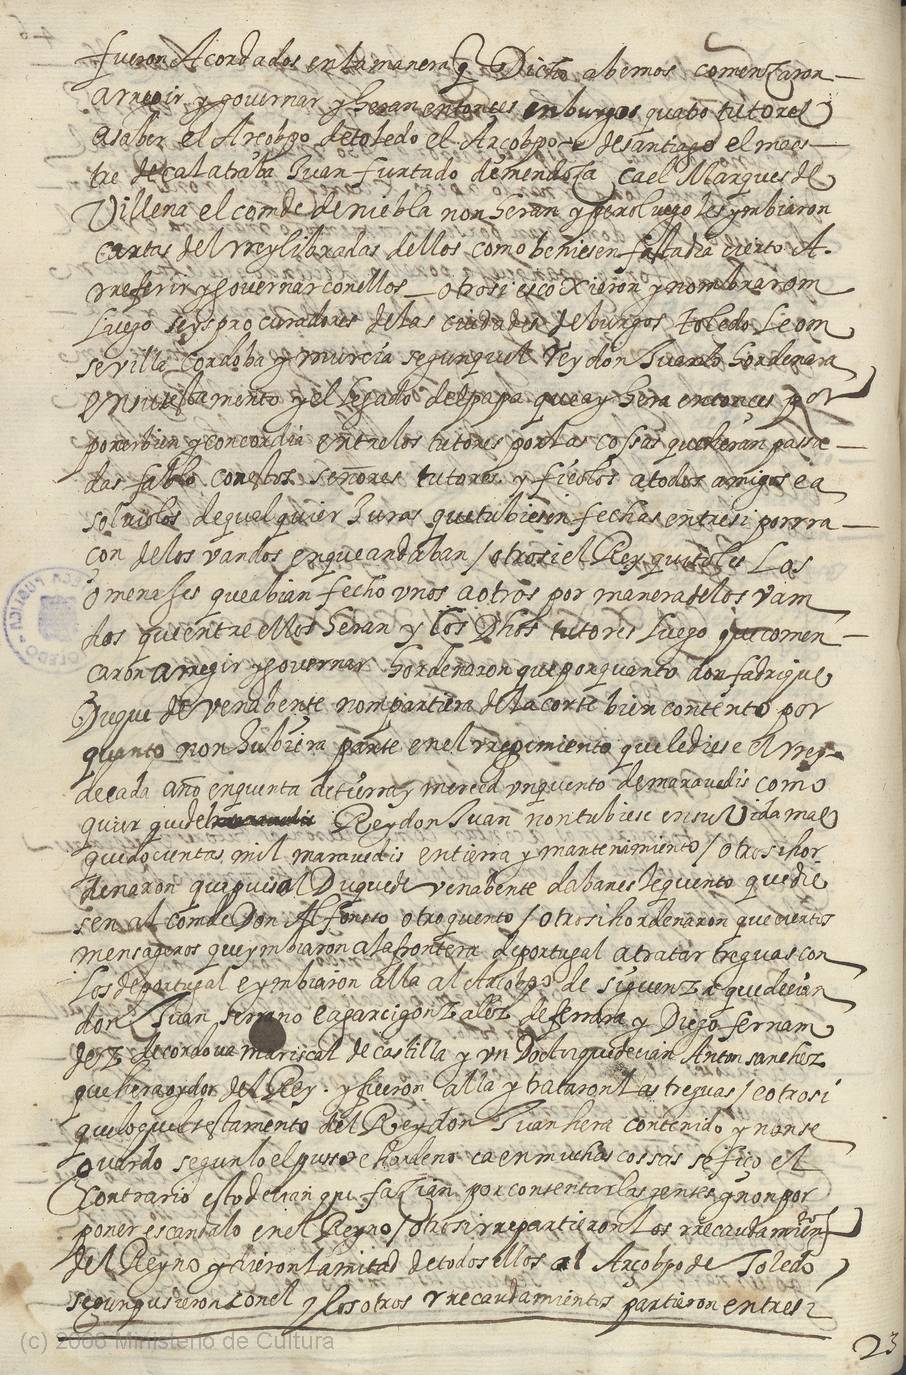 fueron Acordados en la manera q Dicho abemos comenzaron
a rregir y governar y heran entonces en burgos quatro tutores
asaber el Arçobpo de toledo el Arçobpo de santiago el maes
tre de calatraba Juan furtado de mendoça Ca el Marques de
Villena el comde de niebla non heran y pero luego les ymbiaron
cartas del rrey libradas dellos como beniesen fasta dia cierto A
rrexir y governar con ellos otrosi escoxieron y nombraron
luego seys procuradores de las ciudades de burgos toledo Leom
sevilla cordoba y murcia segun quel rey don Juan lo hordenara
en su testamento y el legado del papa que ay hera entonces por
poner bien y concordia entre los tutores por las cossas que heran passa
das fablo con estos señores tutores y fiçolos a todos amigos e a
solviolos de qualquier Juras que tubiesen fechas entre si por rra
çon de los vandos en que andaban / otrosi el Rey quitoles Los
omenajes que abian fecho unos a otros por manera de los vam
dos que entre ellos heran y los dhos tutores luego que comen
caron a rregir y governar hordenaron que por quanto don fadrique
Duque de venabente nom partiera de la corte bien contento por
quanto non hubiera parte en el rregimiento que le diese el rrey
de cada año en quenta de tierra y merced un quento de maravedis como
quier que del Rey don Juan non tubiese en su Vida mas
que docientas mil maravedis en tierra y mantenimiento / otrosi hor
denaron que pues al Duque de venabente daban este quento que die
sen al comde Don Alfonsso otro quento / otrosi hordenaron que ciertos
mensageros que ymbiaron a la frontera de portugal a tratar treguas con
Los de portugal e ymbiaron alla al obpo de siguenza que decian
don Juan serrano e a garci gonzalez de ferrara y Diego fernam
dez de cordova mariscal de castilla y un Doctor que decian Anton sanchez
que hera oydor del Rey y fueron alla y trataron las treguas / e otrosi
que lo quel testamento del Rey don Juan hera contenido y non se
guardo segun lo el puso e hordeno ca en muchas cossas se fiço el
Contrario esto decian que façian por contentar las gentes y non por
poner escandalo en el Reyno / otrosi rrepartieron los rrecaudamientos
del Reyno y dieron la mitad de todos ellos al Arçobpo de Toledo
segun pusieron con el y los otros rrecaudamientos partieron entre si
23
(c) 2006 Ministerio de Cultura